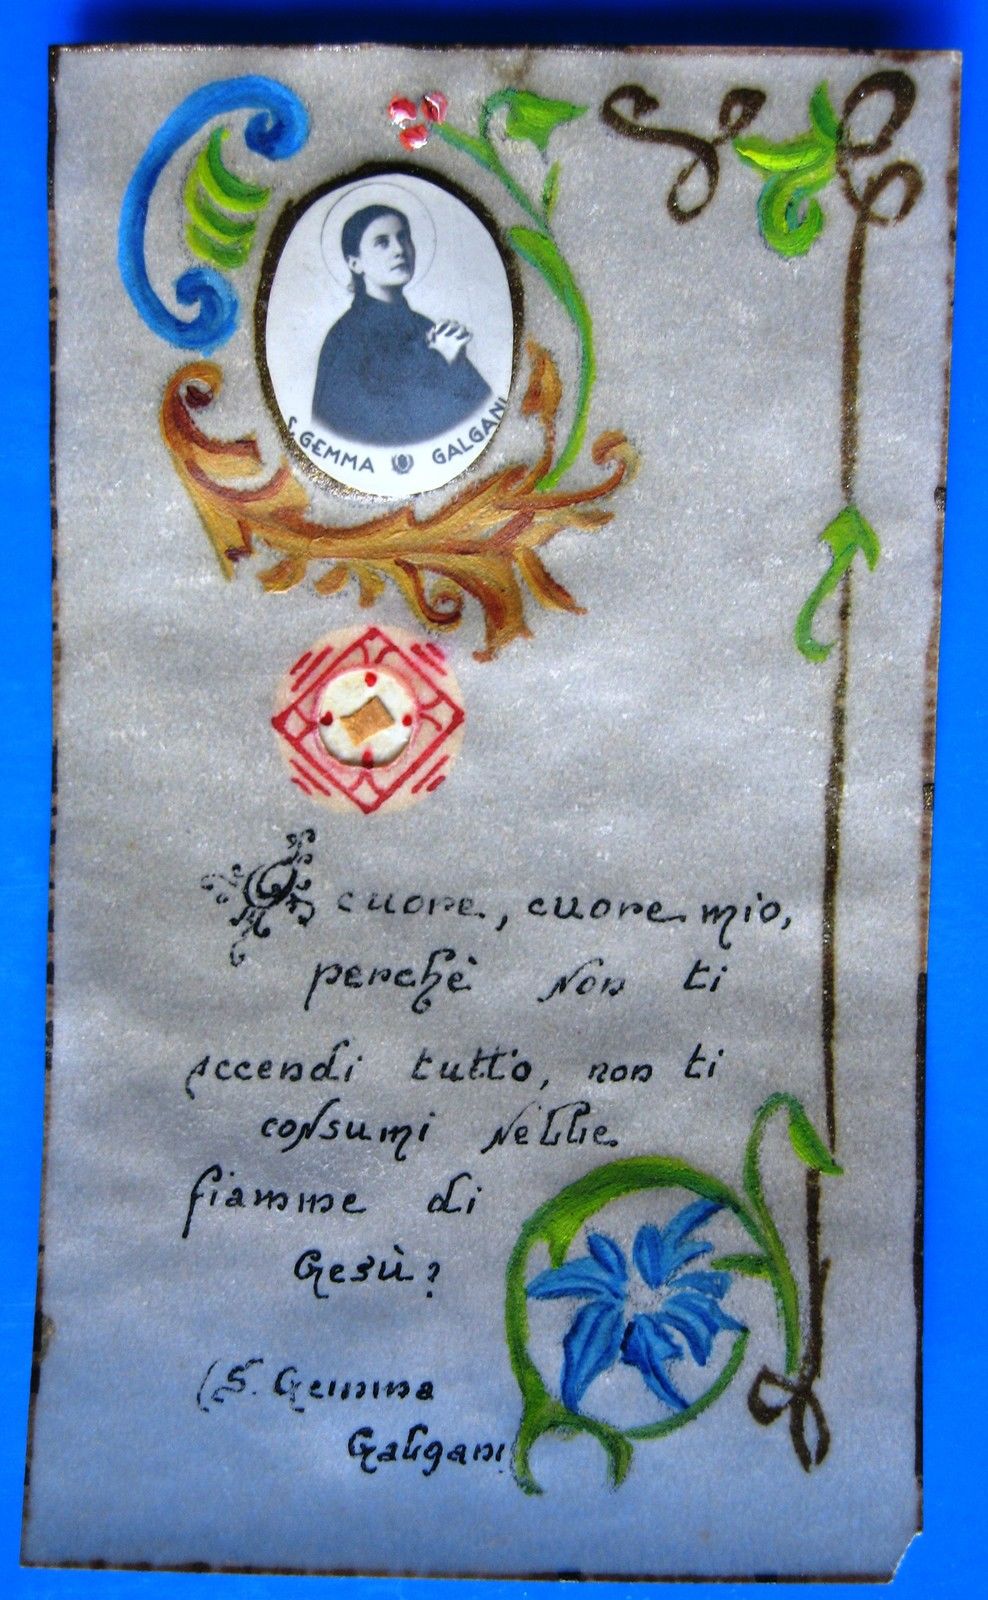 S. GEMMA GALGANI
O cuore, cuore mio,
perchè non ti
accendi tutto, non ti
consumi nelle
fiamme di
Gesù?
(S. Gemma
Galgani